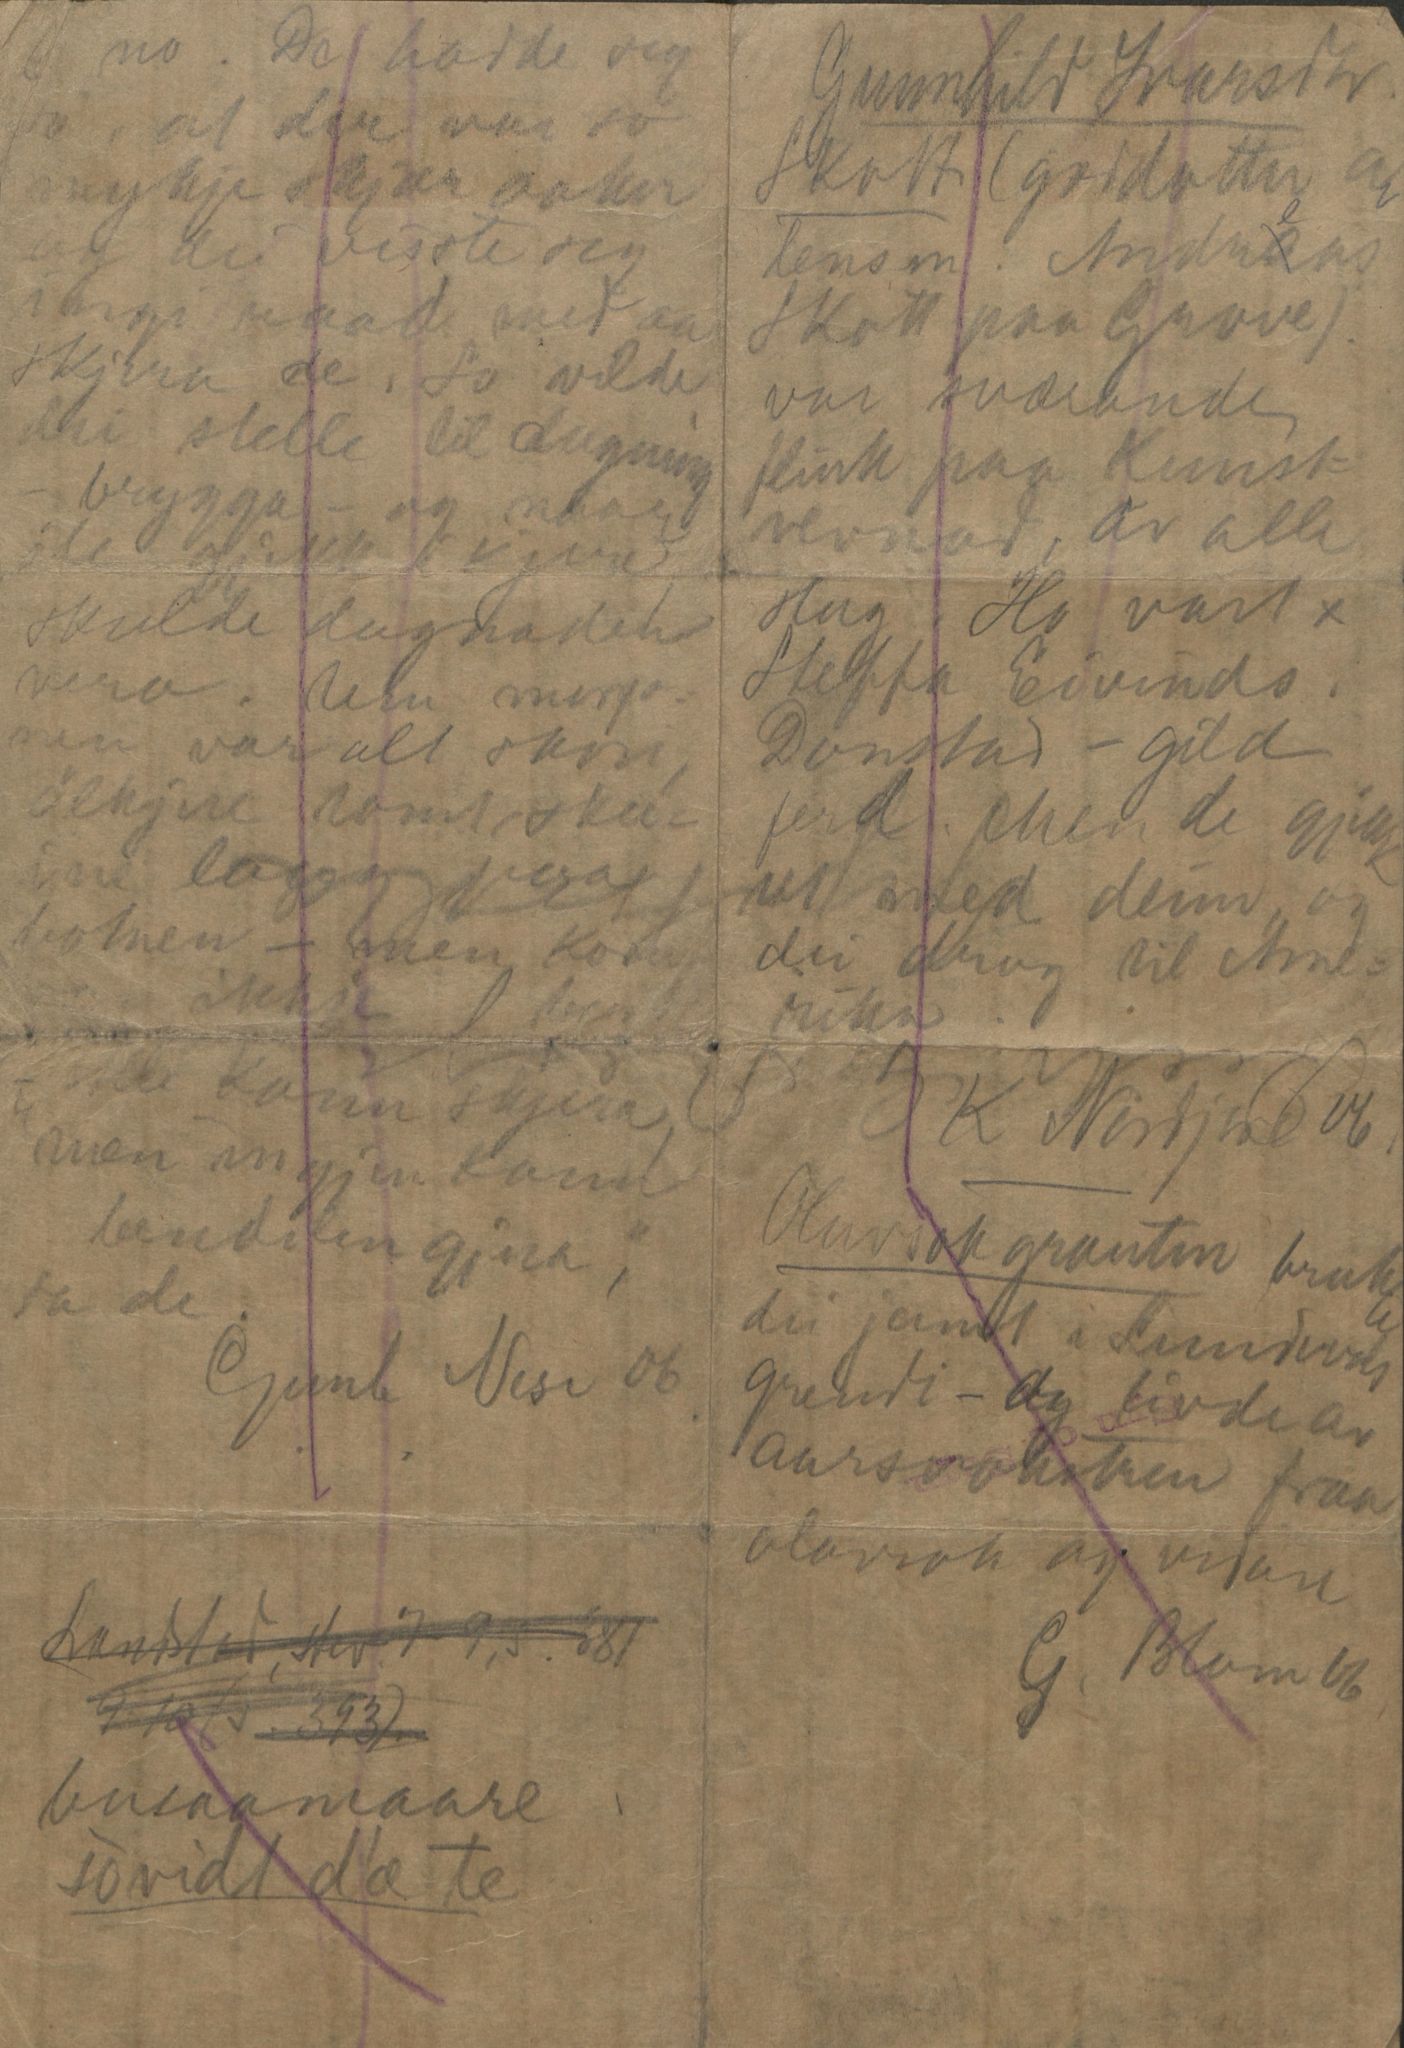 no. De hadde seg
so, at der var so
mykje skjær aaker
og dei visste seg
ingi raad med aa
skjera de. So vilde
dei stelle til dugning
- brygga - og naar
de gjekk i kjere,
skulde dugnaden
vera. Um morgo-
nen var alt skori,
ölkjere tomt, skei-
ine lagga paa
botnen - men korn
ikkje bund
- "Alle kann skjera
men ingjen kann
bendelen gjera",
sa de.
Gunh Nesi 06.
Landstad, Hev. 7-9, s. 381
9-10/s. 393).
busaamaare
sovidt d'æ te
Gunnhild Ivarsdtr.
Skott (goddotter av
lensm. Andreas
Skott paa Grove).
var sværande
flink paa Kunst-
vevnad, av alle
slag. Ho vart x
Steffa Eivinds.
Donstad - gild
ferd. Men de gjekk
ut med deim, og
dei drog til Ame-
rika.
K Nordjore 06.
Olavsokgrauten brukte
dei jamt i Lundevals
grendi - og livde av
aarsvoksteren fraa
olavsok og vidare
G. Blom 06.